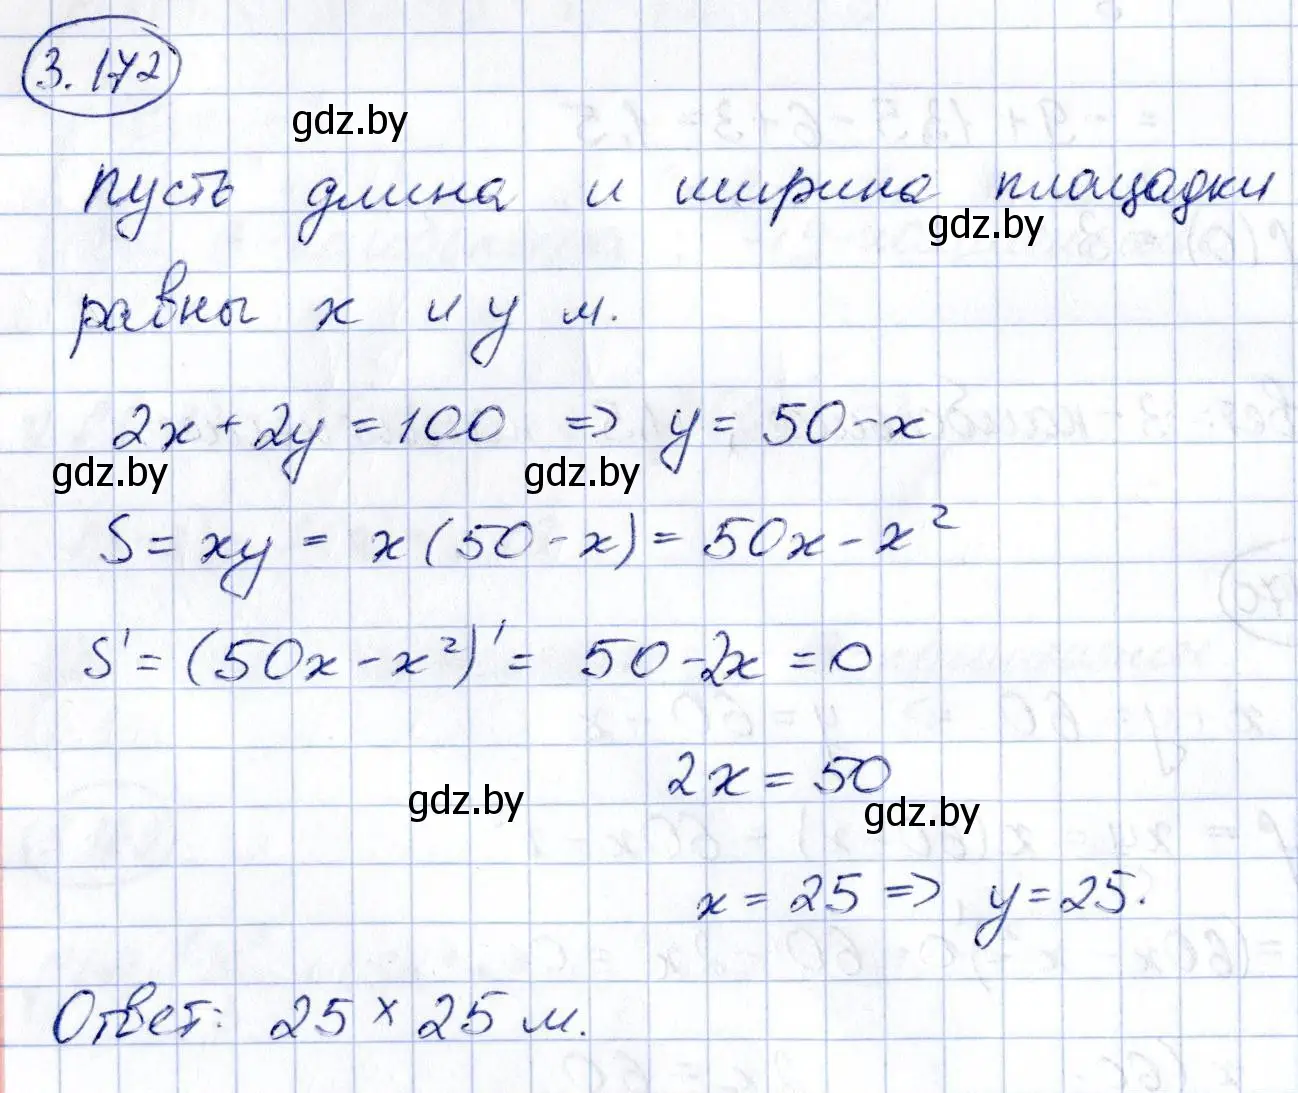 3.172
gdz.by
пусть длина и ширина площадки
gdz.by
равны x и y м.
2x + 2y = 100 => y = 50 - x
gdz.by gdz.by
S = xy = x(50 - x) = 50x - x²
S' = (50x - x²)' = 50 - 2x = 0
2x = 50
gdz.by gdz.by
x = 25 => y = 25.
Ответ: 25 × 25 м.